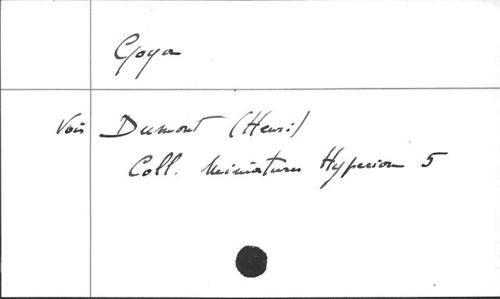 Goya
Voir Dumont (Henri)
Coll. Miniatures Hyperion 5